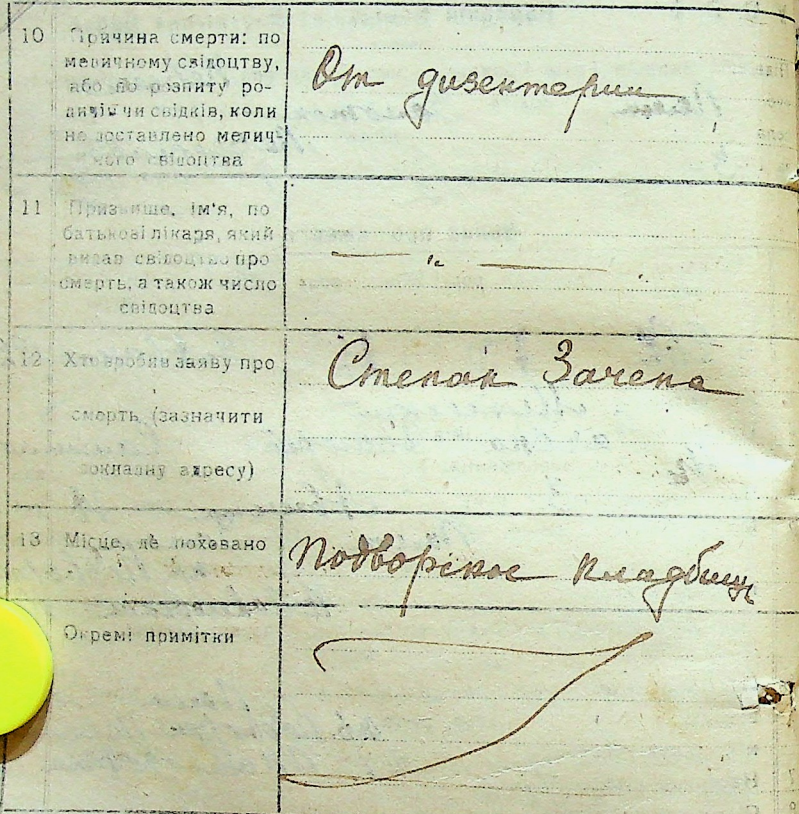 10 Причина смерти: по
медичному свідоцтву,
або по розпиту ро-
дичів чи свідків, коли
не доставлено медич-
ного свідоцтва
От дизентерии
11 Призвище, ім'я, по
батькові лікаря, який
видав свідоцтво про
смерть, а також число
свідоцтва
— „ —
12 Хто зробив заяву про
смерть (зазначити
докладну адресу)
Степан Зачепа
13 Місце, де поховано
Подворское кладбищ
Окремі примітки